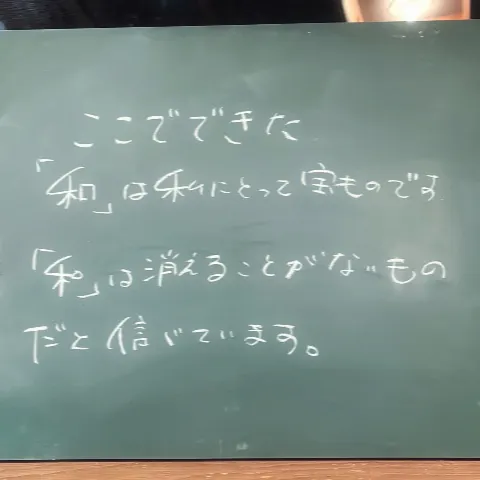 ここでできた
「和」は私にとって宝ものです
「和」は消えることがないもの
だと信じています。